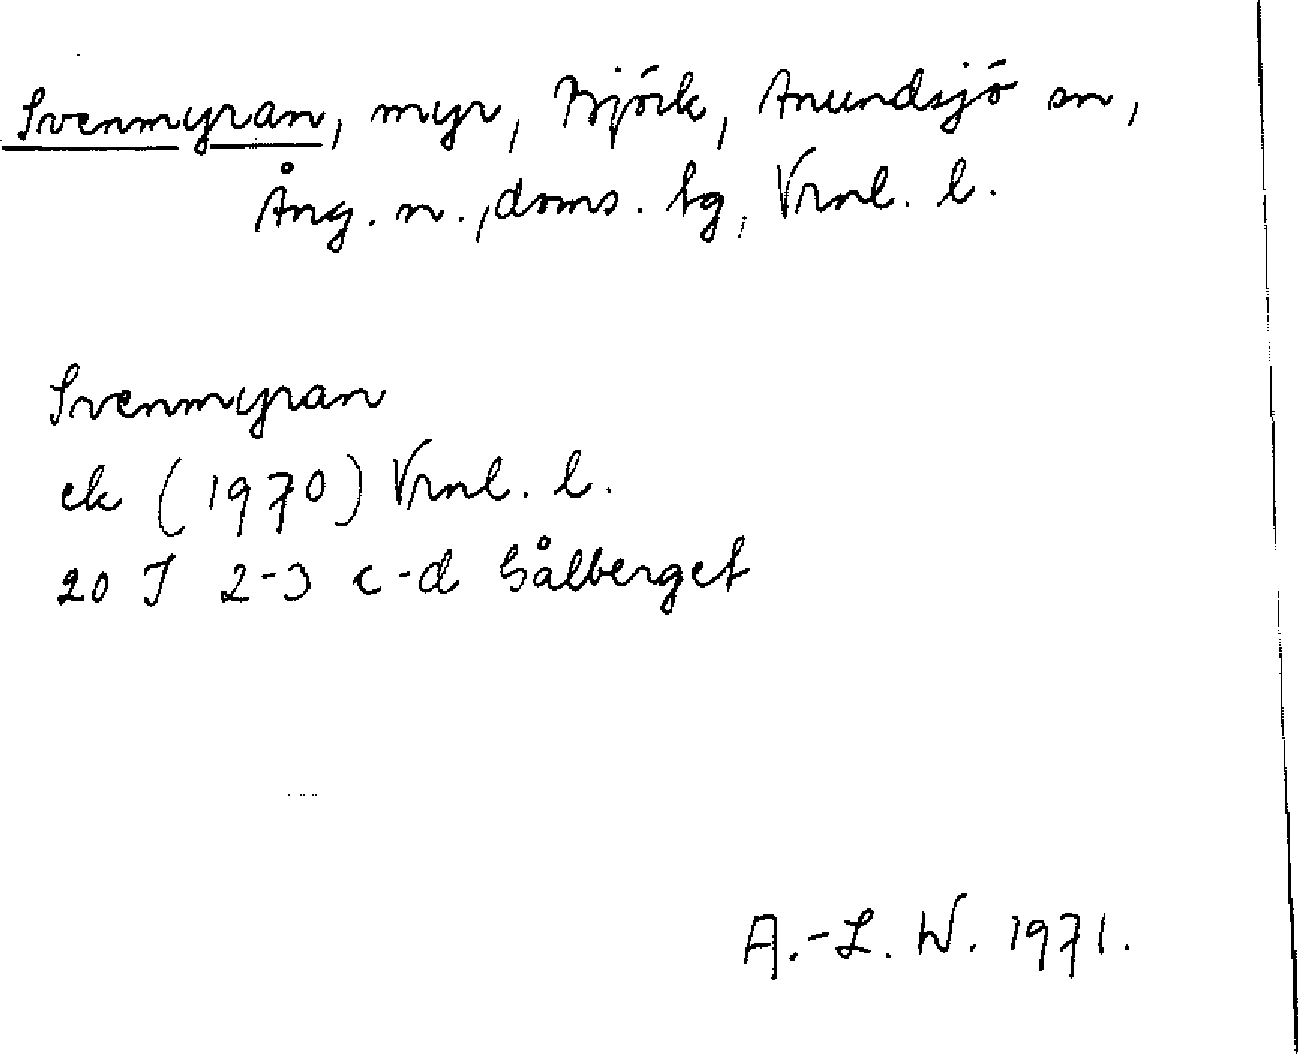 Svenmyran, myr, Björk, Anundsjö sn,
Ång. n., doms. tg, Vrnl. l.
Svenmyran
ek (1970) Vrnl. l.
20 I 2-3 c-d Sålberget
A.-L. W. 1971.